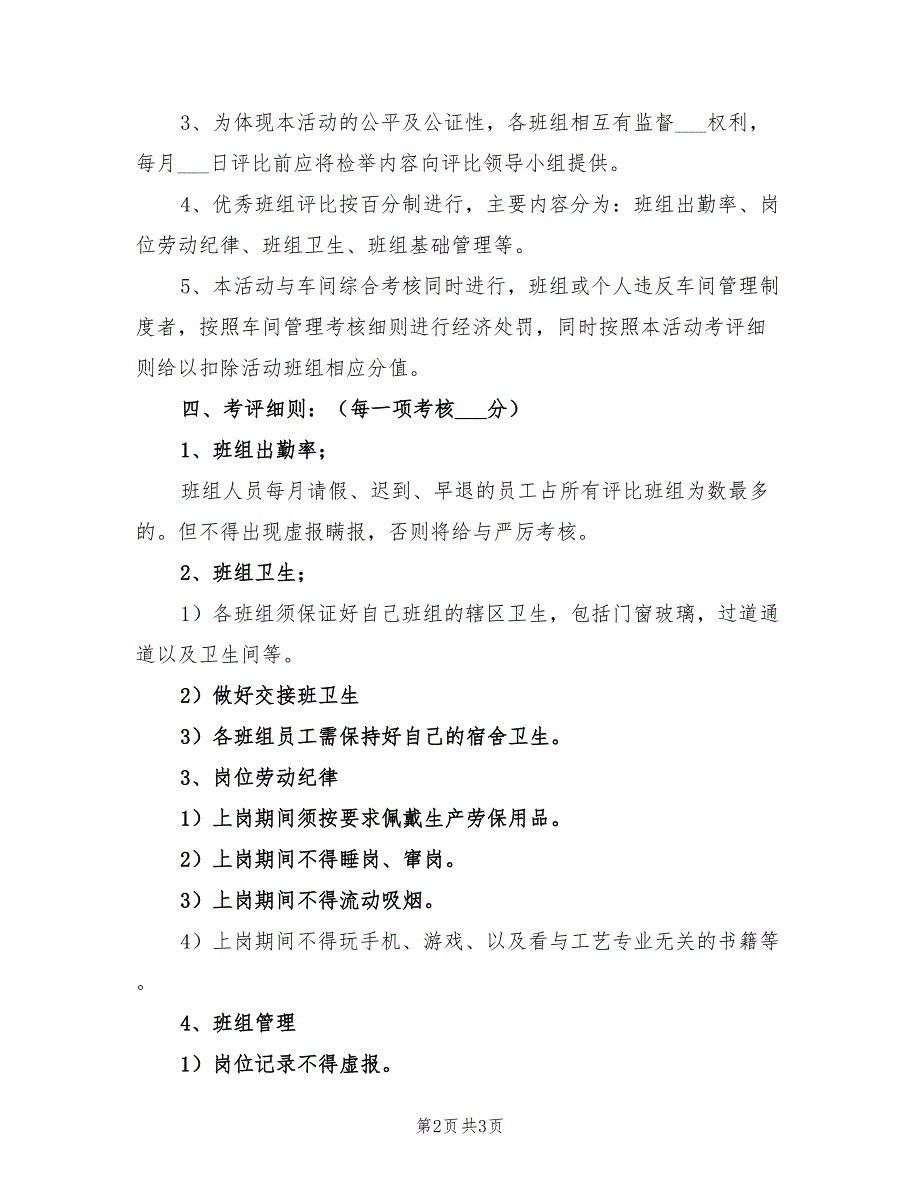 3、为体现本活动的公平及公证性，各班组相互有监督___权利，
每月___日评比前应将检举内容向评比领导小组提供。
4、优秀班组评比按百分制进行，主要内容分为：班组出勤率、岗
位劳动纪律、班组卫生、班组基础管理等。
5、本活动与车间综合考核同时进行，班组或个人违反车间管理制
度者，按照车间管理考核细则进行经济处罚，同时按照本活动考评细
则给以扣除活动班组相应分值。
四、考评细则：（每一项考核___分）
1、班组出勤率；
班组人员每月请假、迟到、早退的员工占所有评比班组为数最多
的。但不得出现虚报瞒报，否则将给与严厉考核。
2、班组卫生；
1）各班组须保证好自己班组的辖区卫生，包括门窗玻璃，过道通
道以及卫生间等。
2）做好交接班卫生
3）各班组员工需保持好自己的宿舍卫生。
3、岗位劳动纪律
1）上岗期间须按要求佩戴生产劳保用品。
2）上岗期间不得睡岗、窜岗。
3）上岗期间不得流动吸烟。
4）上岗期间不得玩手机、游戏、以及看与工艺专业无关的书籍等
。
4、班组管理
1）岗位记录不得虚报。
第2页 共3页